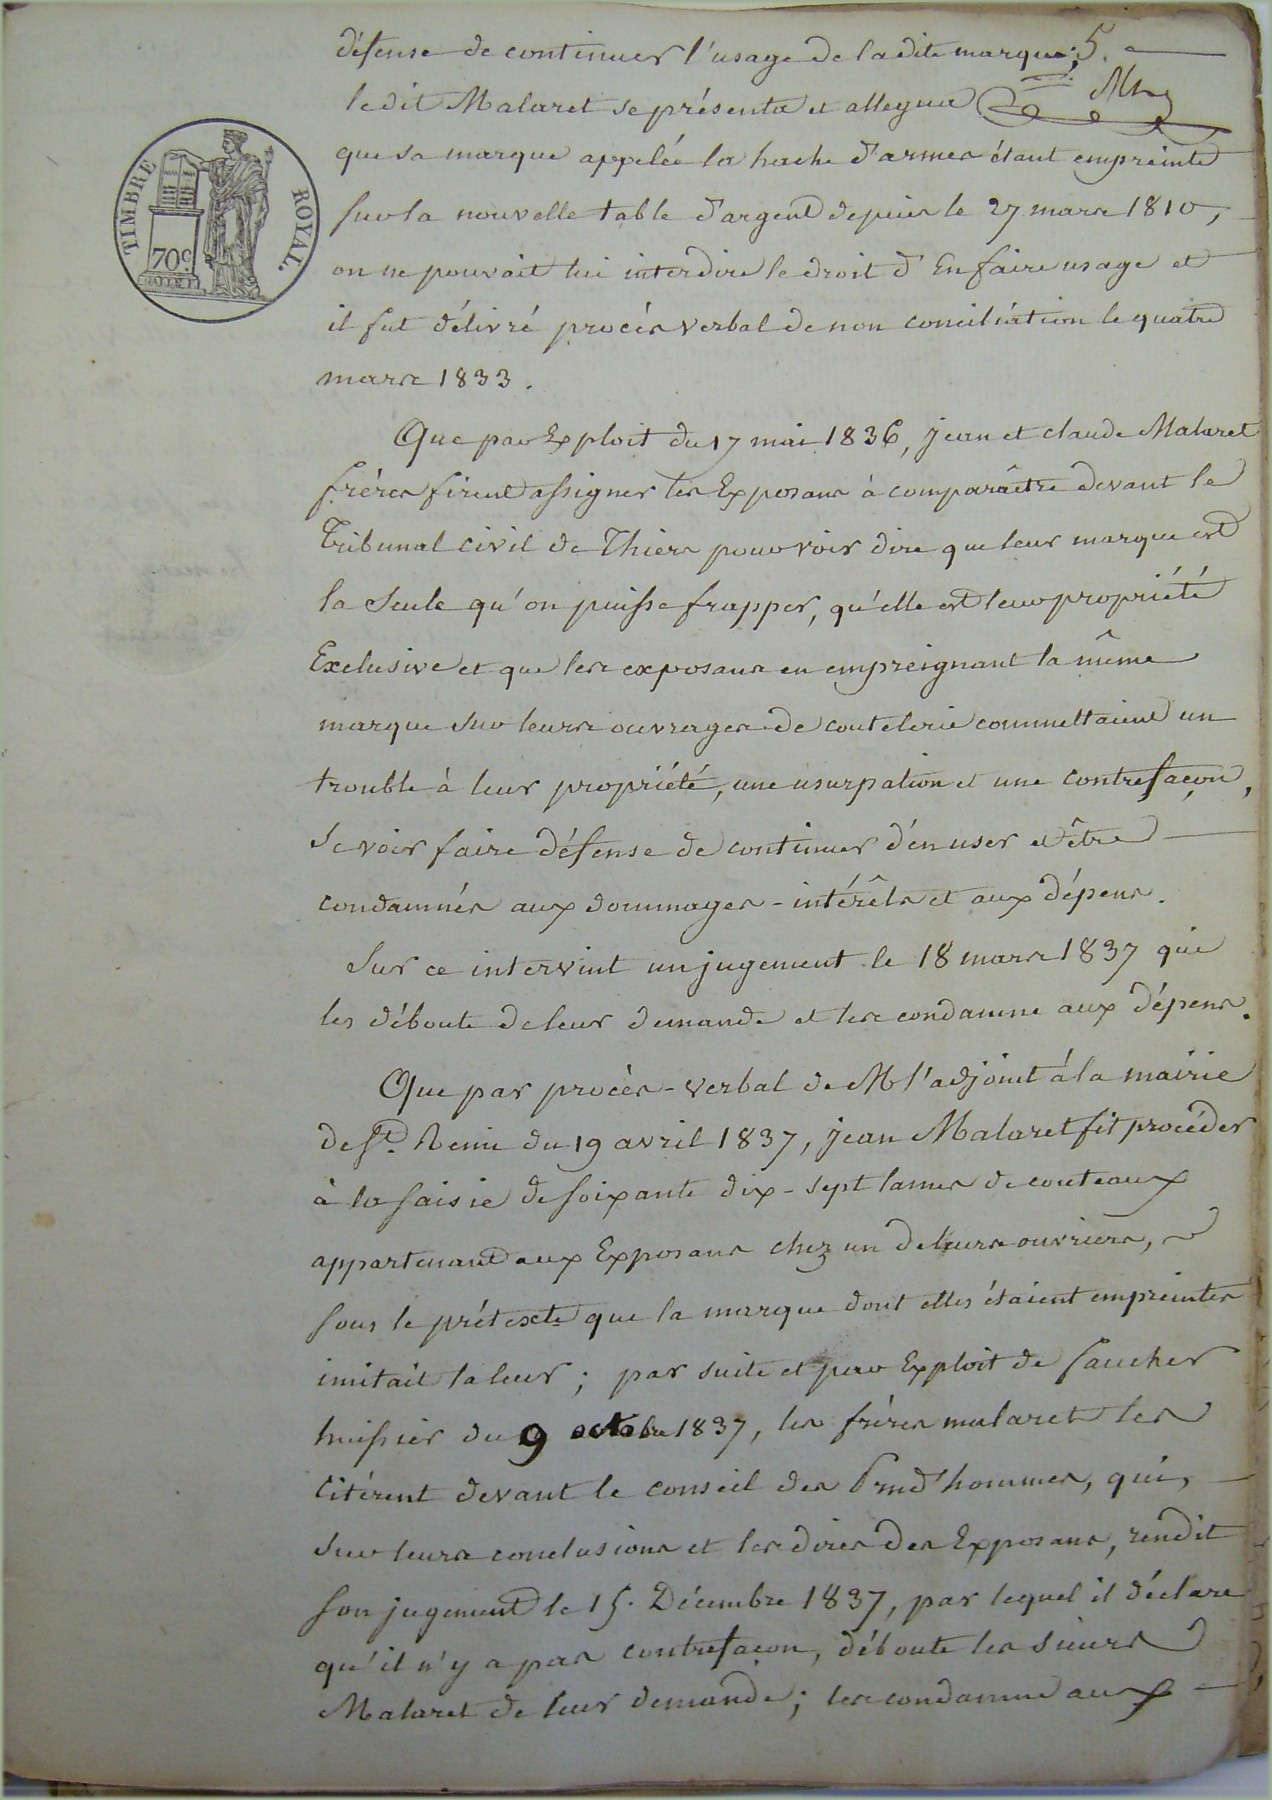 défense de continuer l'usage de la dite marque; 5.
le dit Malaret se présenta et allegua
que sa marque appelée la hache d'armes étant empreinte
sur la nouvelle table d'argent depuis le 27 mars 1810,
on ne pouvait lui interdire le droit d'En faire usage et
il fut délivré procès verbal de non conciliation le quatre
mars 1833.
Que par Exploit du 17 mai 1836, jean et claude Malaret
frères firent assigner les Exposans à comparaître devant le
Tribunal civil de Thiers pour voir dire que leur marque est
la Seule qu'on puisse frapper, qu'elle est leur propriété
Exclusive et que les exposans en empreignant la même
marque sur leurs ouvrages de coutelerie commettaient un
trouble à leur propriété, une usurpation et une contrefaçon,
se voir faire défense de continuer d'en user et être
condamnés aux dommages-intérêts et aux dépens.
Sur ce intervint un jugement le 18 mars 1837 qui
les déboute de leur demande et les condamne aux dépens.
Que par procès-verbal de M l'adjoint à la mairie
de St. Remi du 19 avril 1837, jean Malaret fit procéder
à la saisie de soixante dix-sept lames de couteaux
appartenant aux Exposans chez un de leurs ouvriers,
sous le prétexte que la marque dont elles étaient empreintes
imitait la leur; par suite et par Exploit de faucher
huissier du 9 octobre 1837, les frères malaret les
citèrent devant le conseil des Prud'hommes, qui,
sur leurs conclusions et les dires des Exposans, rendit
son jugement le 15. Décembre 1837, par lequel il déclare
qu'il n'y a pas contrefaçon, déboute les sieurs
Malaret de leur demande; les condamne aux
TIMBRE ROYAL.
70c.